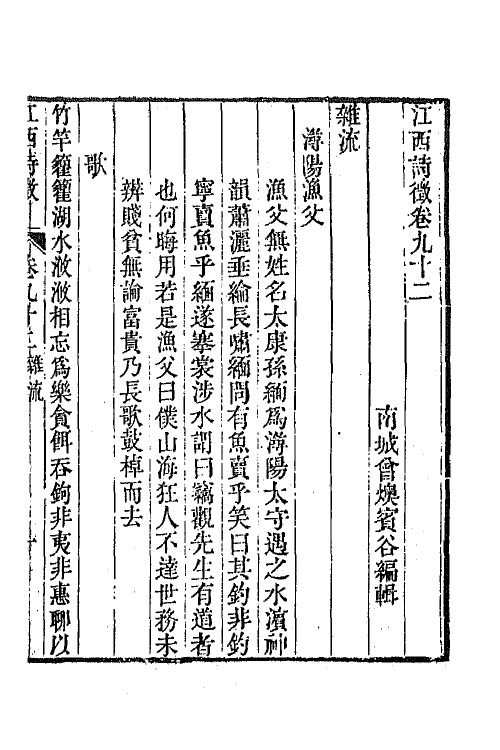 江西詩徵卷九十二
南城曾燠賓谷編輯
雜流
潯陽漁父
漁父無姓名太康孫緬爲潯陽太守遇之水濵神
韻蕭灑垂綸長嘯緬問有魚賣乎笑曰其釣非釣
寧賣魚乎緬遂搴裳涉水謂曰竊觀先生有道者
也何晦用若是漁父曰僕山海狂人不達世務未
辨賤貧無論富貴乃長歌鼓棹而去
歌
竹竿籊籊湖水浟浟相忘爲樂貪餌吞鉤非夷非惠聊以
江西詩徵 卷九十二 雜流 一